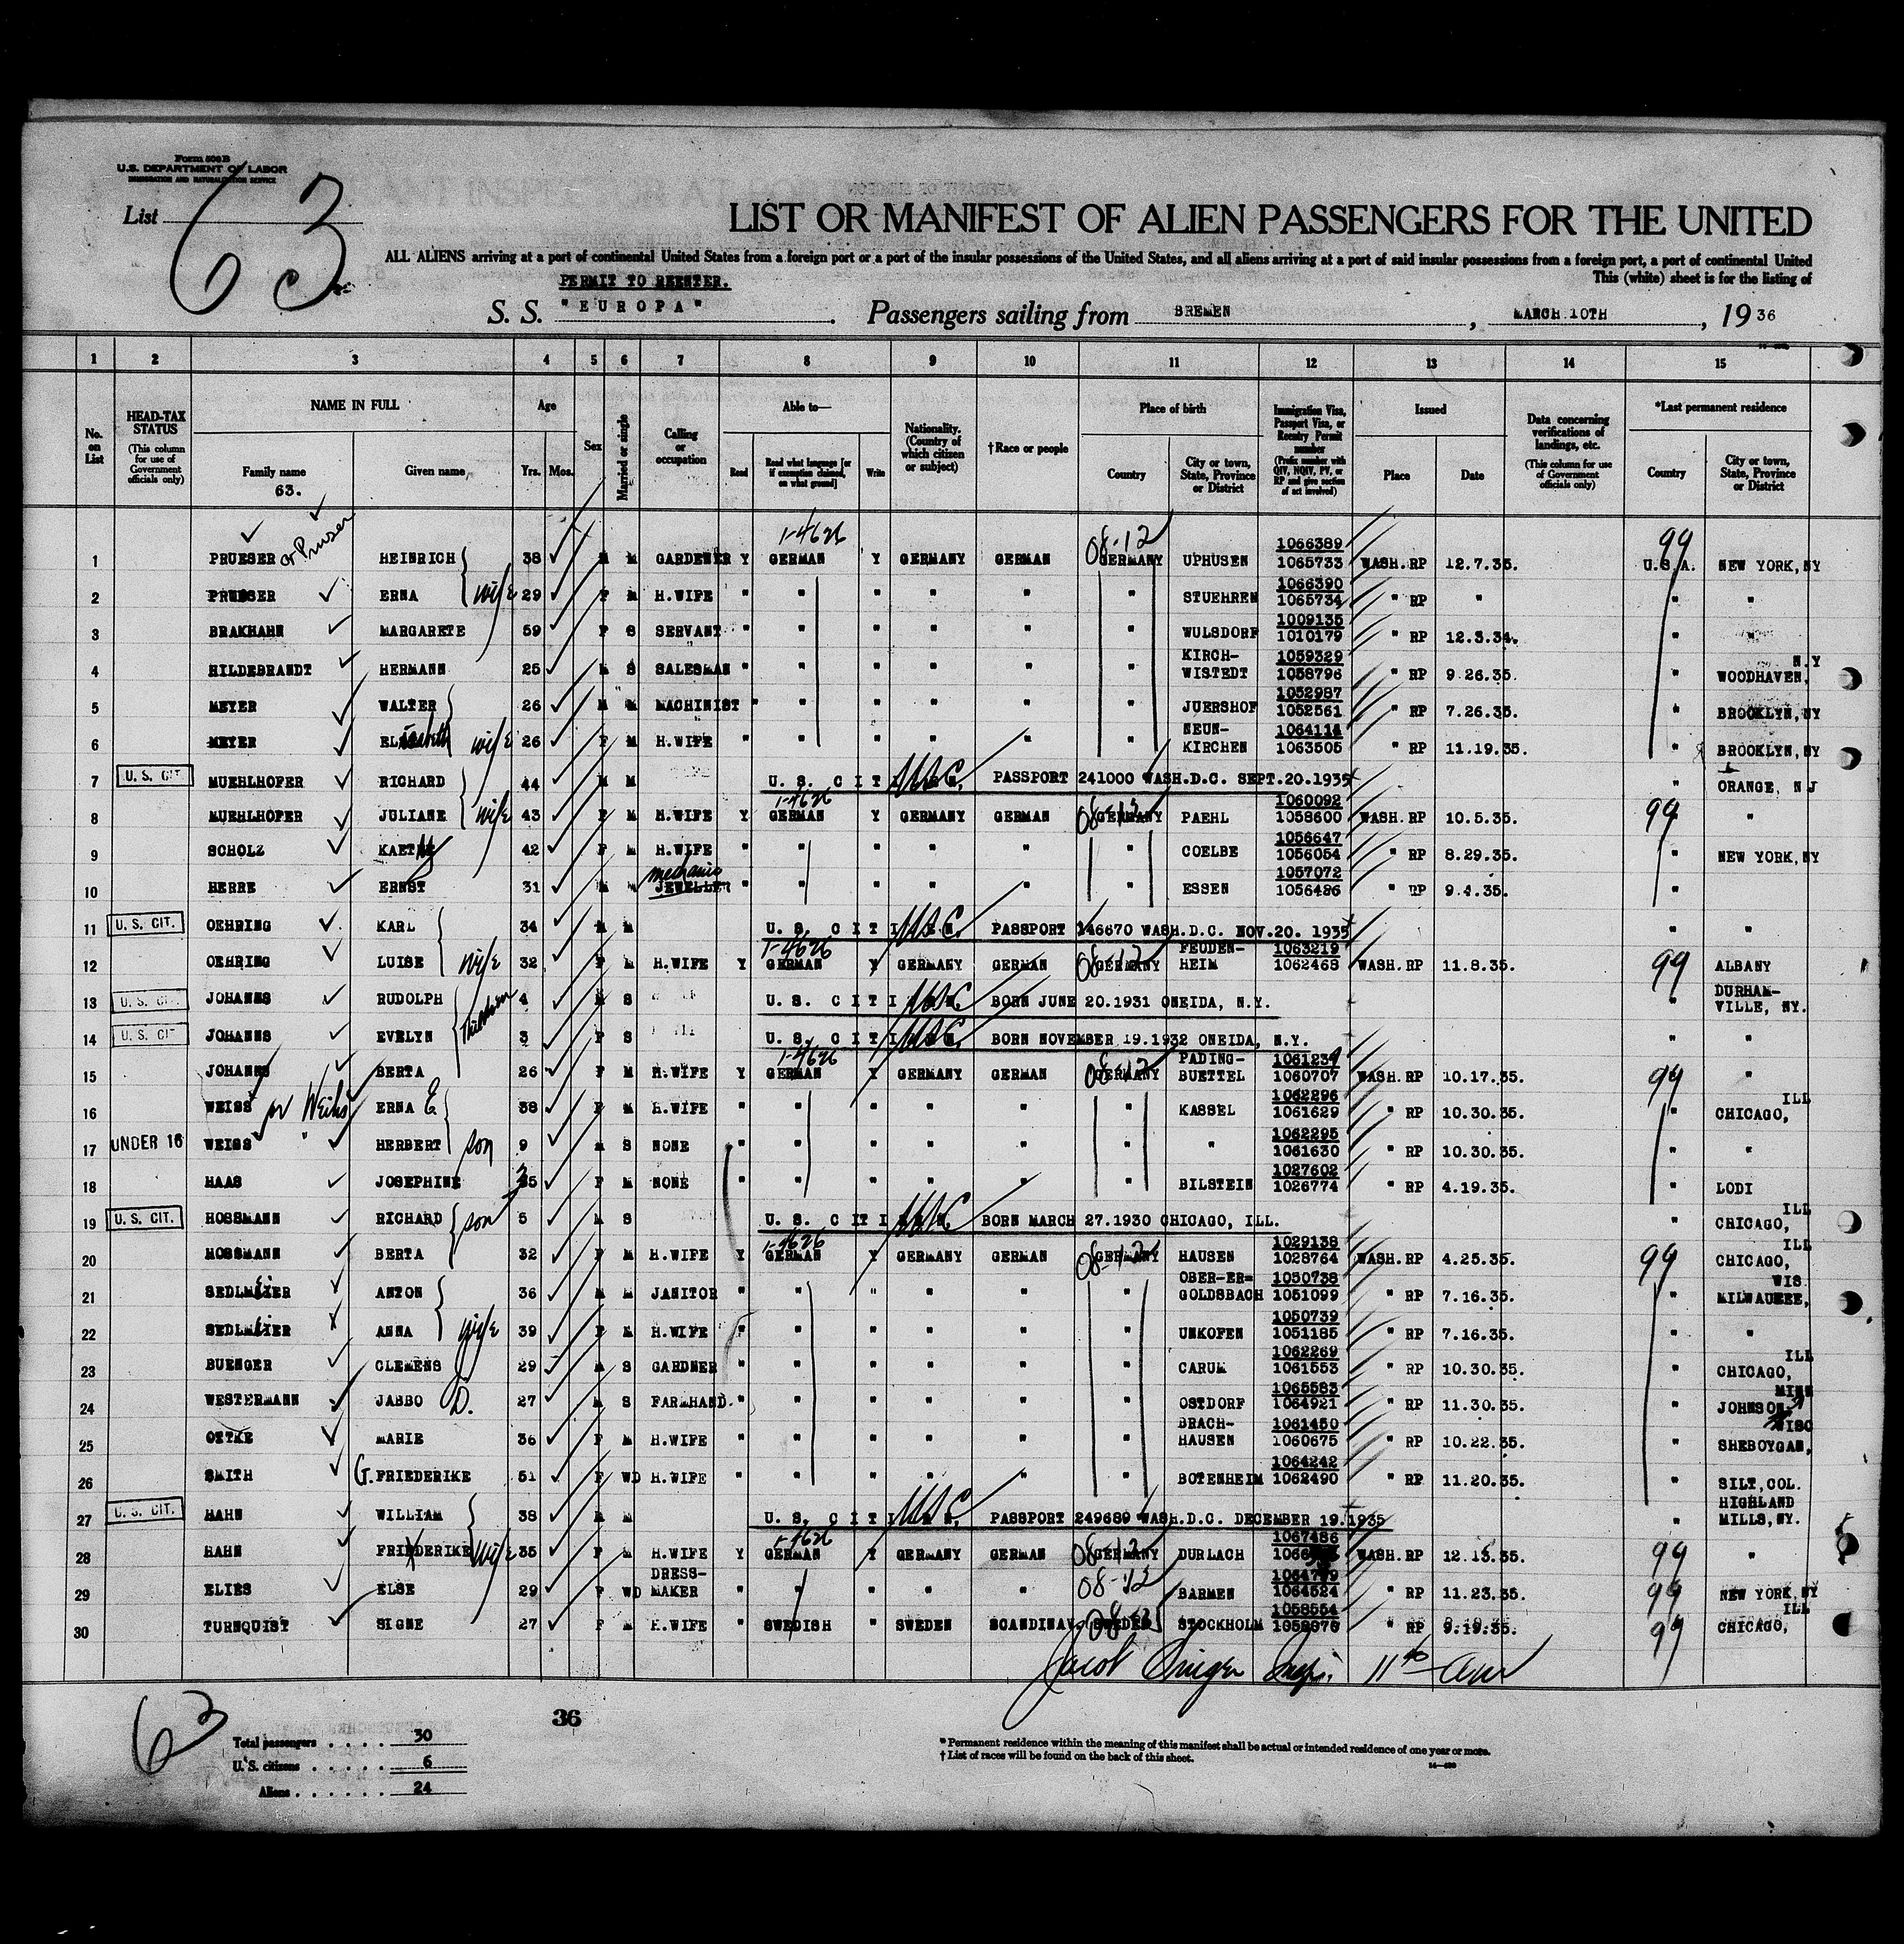 Form 500 B
U.S. DEPARTMENT OF LABOR
IMMIGRATION AND NATURALIZATION SERVICE
List 63
LIST OR MANIFEST OF ALIEN PASSENGERS FOR THE UNITED
ALL ALIENS arriving at a port of continental United States from a foreign port or a port of the insular possessions of the United States, and all aliens arriving at a port of said insular possessions from a foreign port, a port of continental United
This (white) sheet is for the listing of
PERMIT TO REENTER.
S. S. "EUROPA". Passengers sailing from BREMEN, MARCH 10TH, 1936
1 2 3 4 5 6 7 8 9 10 11 12 13 14 15
No. on List
HEAD-TAX STATUS (This column for use of Government officials only)
NAME IN FULL Family name Given name
63.
Age Yrs. Mos.
Sex
Married or single
Calling or occupation
Able to— Read Read what language [or if exemption claimed, on what ground] Write
Nationality. (Country of which citizen or subject)
†Race or people
Place of birth Country City or town, State, Province or District
Immigration Visa, Passport Visa, or Reentry Permit number (Prefix number with QIV, NQIV, PV, or RP and give section of act involved)
Issued Place Date
Data concerning verifications of landings, etc. (This column for use of Government officials only)
*Last permanent residence Country City or town, State, Province or District
1 PRUESER or Pruser HEINRICH 38 M M GARDENER Y 1-4626 GERMAN Y GERMANY GERMAN 08-12 GERMANY UPHUSEN 1066389 1065733 WASH. RP 12.7.35. 99 U.S.A. NEW YORK, NY
2 PRUESER ERNA wife 29 F M H.WIFE " " " " " " STUEHREN 1066390 1065734 " RP " " "
3 BRAKHAHN MARGARETE 59 F S SERVANT " " " " " " WULSDORF 1009135 1010179 " RP 12.3.34. " "
4 HILDEBRANDT HERMANN 25 M S SALESMAN " " " " " " KIRCH-WISTEDT 1059329 1058796 " RP 9.26.35. " WOODHAVEN, N.Y
5 MEYER WALTER 26 M M MACHINIST " " " " " " JUERSHOF 1052987 1052561 " RP 7.26.35. " BROOKLYN, NY
6 MEYER ELisabeth wife 26 F M H.WIFE " " " " " " NEUN-KIRCHEN 1064114 1063505 " RP 11.19.35. " BROOKLYN, NY
7 U. S. CIT. MUEHLHOFER RICHARD 44 M M U. S. CITIZEN, USC PASSPORT 241000 WASH.D.C. SEPT.20.1935 " ORANGE, NJ
8 MUEHLHOFER JULIANE wife 43 F M H.WIFE Y 1-4626 GERMAN Y GERMANY GERMAN 08-12 GERMANY PAEHL 1060092 1058600 WASH. RP 10.5.35. 99 "
9 SCHOLZ KAETHE 42 F M H.WIFE " " " " " " COELBE 1056647 1056054 " RP 8.29.35. " NEW YORK, NY
10 HERRE ERNST 31 M M mechanic JEWELLER " " " " " " ESSEN 1057072 1056486 " RP 9.4.35. " "
11 U. S. CIT. OEHRING KARL 34 M M U. S. CITIZEN. USC PASSPORT 146670 WASH.D.C. NOV.20. 1935 " "
12 OEHRING LUISE wife 32 F M H.WIFE Y 1-4626 GERMAN Y GERMANY GERMAN 08-12 GERMANY FEUDEN-HEIM 1063219 1062468 WASH. RP 11.8.35. 99 ALBANY
13 U. S. CIT. JOHANNS RUDOLPH 4 M S U. S. CITIZEN USC BORN JUNE 20.1931 ONEIDA, N.Y. " DURHAM-VILLE, NY.
14 U. S. CIT JOHANNS EVELYN Children 3 F S U. S. CITIZEN, USC BORN NOVEMBER 19.1932 ONEIDA, N.Y. " "
15 JOHANNS BERTA 26 F M H.WIFE Y 1-4626 GERMAN Y GERMANY GERMAN 08-12 GERMANY PADING-BUETTEL 1061239 1060707 WASH. RP 10.17.35. 99 "
16 WEISS or Weihs ERNA E 38 F M H.WIFE " " " " " " KASSEL 1062296 1061629 " RP 10.30.35. " CHICAGO, ILL
17 UNDER 16 WEISS HERBERT son 9 M S NONE " " " " " " " 1062295 1061630 " RP 10.30.35. " "
18 HAAS JOSEPHINE 35 F M NONE " " " " " " BILSTEIN 1027602 1026774 " RP 4.19.35. " LODI
19 U. S. CIT. HOSSMANN RICHARD son 5 M S U. S. CITIZEN, USC BORN MARCH 27.1930 CHICAGO, ILL. " CHICAGO, ILL
20 HOSSMANN BERTA 32 F M H.WIFE Y 1-4626 GERMAN Y GERMANY GERMAN 08-12 GERMANY HAUSEN 1029138 1028764 WASH. RP 4.25.35. 99 CHICAGO, ILL
21 SEDLMEIER ANTON 36 M M JANITOR " " " " " " OBER-ER=GOLDSBACH 1050738 1051099 " RP 7.16.35. " MILWAUKEE, WIS
22 SEDLMEIER ANNA wife 39 F M H.WIFE " " " " " " UNKOFEN 1050739 1051185 " RP 7.16.35. " "
23 BUENGER CLEMENS 29 M S GARDNER " " " " " " CARUM 1062269 1061553 " RP 10.30.35. " CHICAGO, ILL
24 WESTERMANN JABBO D. 27 M S FARMHAND. " " " " " " OSTDORF 1065583 1064921 " RP 11.30.35. " JOHNSON, MINN
25 OTTKE MARIE 36 F M H.WIFE " " " " " " BRACH-HAUSEN 1061450 1060675 " RP 10.22.35. " SHEBOYGAN, WISC
26 SMITH G. FRIEDERIKE 51 F WD H.WIFE " " " " " " BOTENHEIM 1064242 1062490 " RP 11.20.35. " SILT, COL.
27 U. S. CIT. HAHN WILLIAM 38 M M U. S. CITIZEN, USC PASSPORT 249689 WASH.D.C. DECEMBER 19.1935 " HIGHLAND MILLS, NY.
28 HAHN FRIEDERIKE wife 35 F M H.WIFE Y 1-4626 GERMAN Y GERMANY GERMAN 08-12 GERMANY DURLACH 1067486 WASH. RP 12.13.35. 99 "
29 ELIES ELSE 29 F WD DRESS-MAKER " " " " " 08-12 " BARMEN 1064524 " RP 11.23.35. 99 NEW YORK, NY
30 TURNQUIST SIGNE 27 F M H.WIFE " SWEDISH " SWEDEN SCANDINAV. 08-12 SWEDEN STOCKHOLM 1058554 " RP 9.19.35. 99 CHICAGO, ILL
Jacob
63
36
Total passengers . . . . 30
U. S. citizens . . . . . 6
Aliens . . . . . . 24
* Permanent residence within the meaning of this manifest shall be actual or intended residence of one year or more.
† List of races will be found on the back of this sheet.